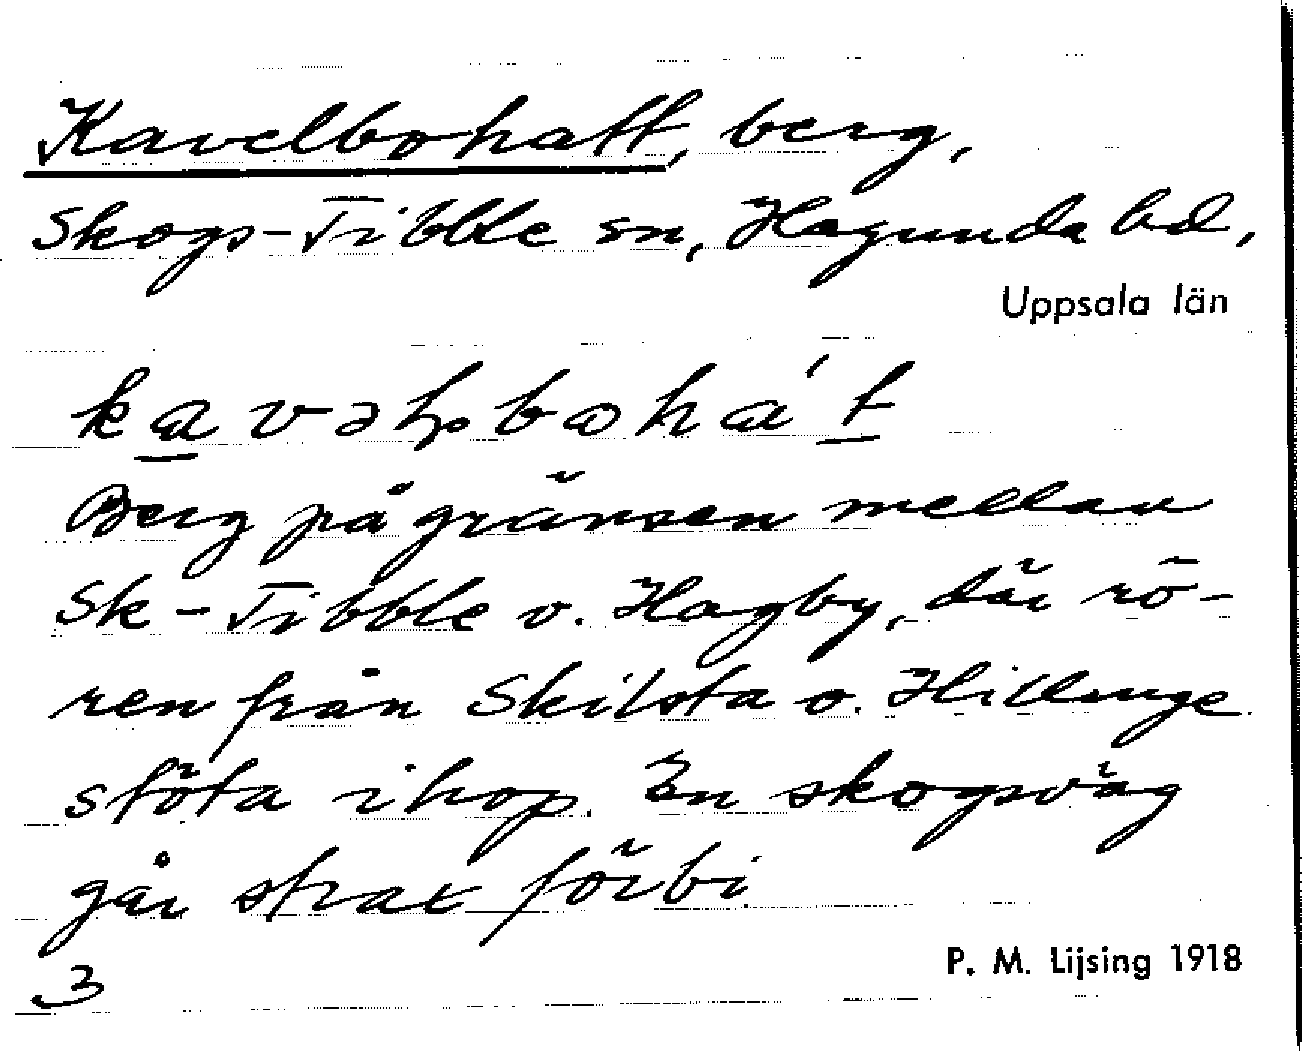 Kavelbohatt, berg,
Skogs-Tibble sn, Hagunda hd,
Uppsala län
Berg på gränsen mellan
Sk-Tibble o. Hagby, där rö-
ren från Skilsta o. Hillunge
stöta ihop. En skogsväg
går strax förbi
3
P. M. Lijsing 1918